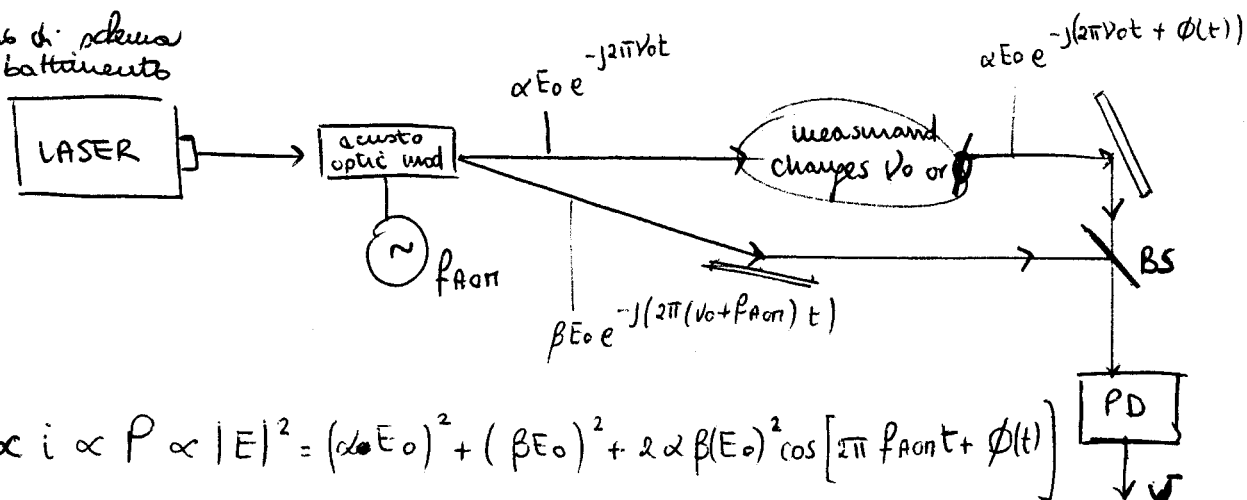 di schema
battimento
LASER
acusto
optic mod
~
fAOM
αE₀ e^-j2πν₀t
measurand
changes ν₀ or ϕ
αE₀ e^-j(2πν₀t + ϕ(t))
βE₀ e^-j(2π(ν₀+fAOM) t)
BS
PD
∝ i ∝ P ∝ |E|² = (αE₀)² + (βE₀)² + 2αβ(E₀)² cos[2π fAOM t + ϕ(t)]